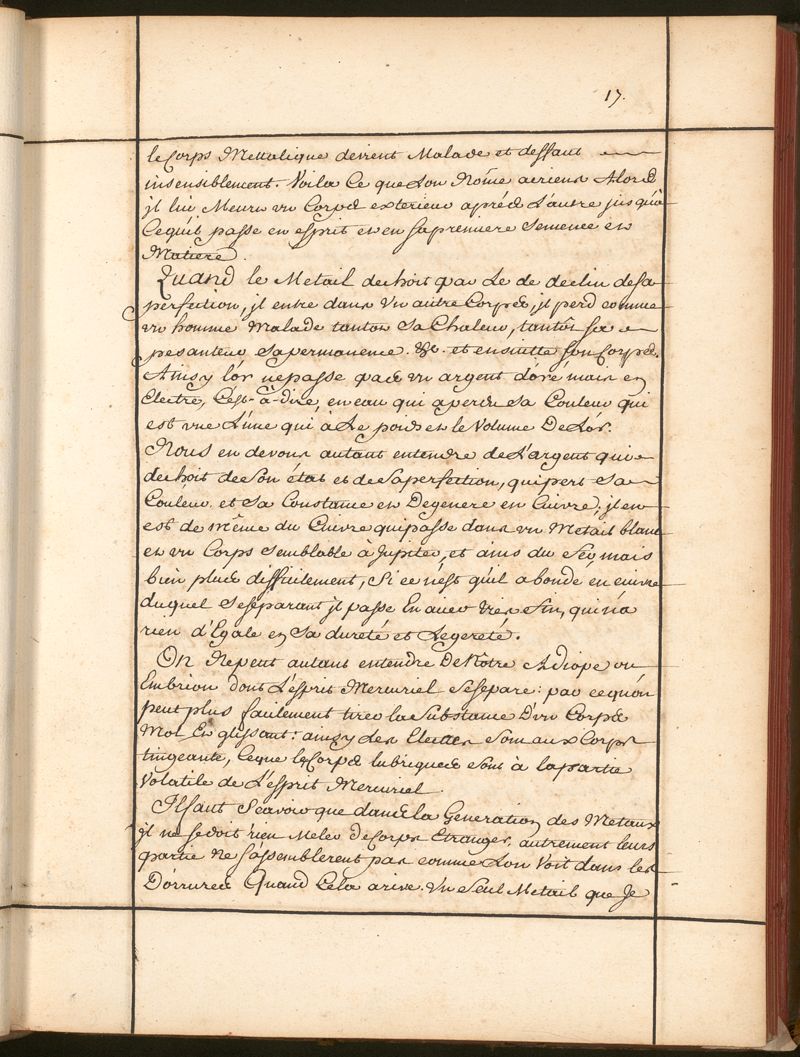 17.
le Corps Mettalique devient Malade et deffaut
insensiblement. Voila Ce que Lon Nom̃e aeriens Alors
jl lui Meurn vn Corps exterieur aprés L'autre jusqu'à
Cequ'il passe en esprit et en sa premiere semence en
Matiere.
Quand le Metail dechoit par Le de declin desa
perfection, jl entre dans Vn autre Corps, jl perd comme
vn homme Malade tantos sa Chaleur, tantôt sa
pesanteur sa permanence &c. et ensuitte son Corps.
Ainsy l'or nepasse pas en argent doré mais en
Electre, C'est-à-dire, en eau qui a perdu sa Couleur qui
est vne L'une qui à Le poids et le Volume De L'or.
Nous en devons autant entendre de L'argent qui
dechoit deson état et desaperfection, qui pert sa
Couleur et sa Constance en Degenere en Cuivre; jl en
est de même du Cuivre quipasse dans vn Metail blanc
en vn Corps semblable à Jupiter, et ains du fer, mais
bien plus difficilement, Si ce n'est qu'il abonde en cuivre
duquel seséparant jl passe En acier tres fin, qui n'a
rien d'Egale en sa dureté et Legereté.
On Nepeut autant entendre De Nôtre Adrope ou
Embrion dont L'esprit Mercuriel sesepare: par cequ'on
peut plus facilement tirer la substance D'vn Corps
Mol En glissant: ainsy des Electres Som aux Corps
tingeants, Ceque les Corps lubriques sont à la partie
Volatile de L'esprit Mercuriel.
Il faut Scavoir que dans la Generation des Metaux
jl ne sedoit rien Meler de Corps Etranger, autrement leurs
partie Ne s'assemblerent pas comme Lon Voit dans les
Dorrures Quand Cela arive. Vn Seul Metail que Je